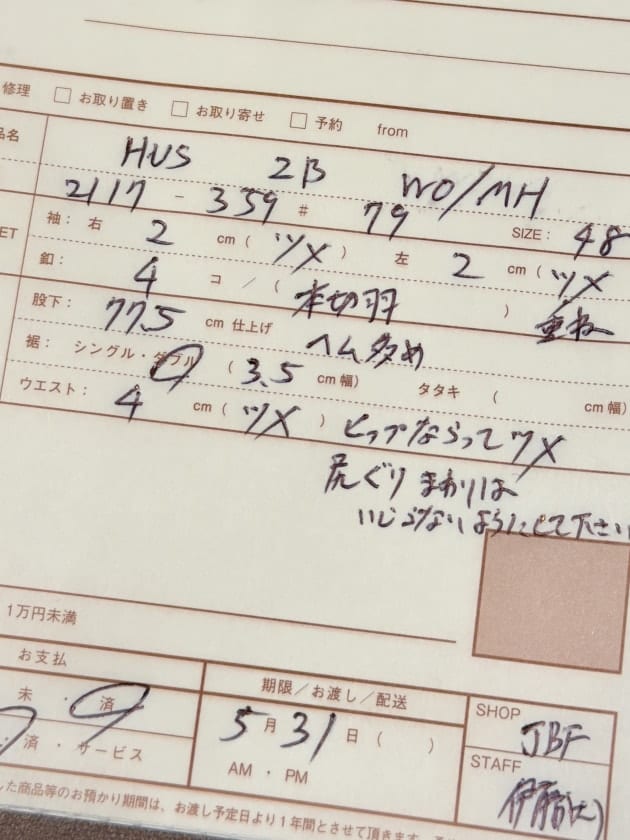 修理 □ お取り置き □ お取り寄せ □ 予約 from
品名 HUS 2B WO/MH
2117 - 359 # 79 SIZE: 48
袖: 右 2 cm ( ツメ ) 左 2 cm ( ツメ
釦: 4 コ / ( 本切羽 ) 重ね
股下: 77.5 cm 仕上げ ヘム多め
裾: シングル・ダブル ( 3.5 cm 幅) タタキ ( cm 幅)
ウエスト: 4 cm ( ツメ ) ヒップならってツメ
尻ぐりまわりは
いじらないようにして下さい
1万円未満
お支払 期限/お渡し/配送
未・済 5月31日 ( ) SHOP JBF
済・サービス AM・PM STAFF 伊藤
した商品等のお預かり期間は、お渡し予定日より1年間とさせて頂きます。